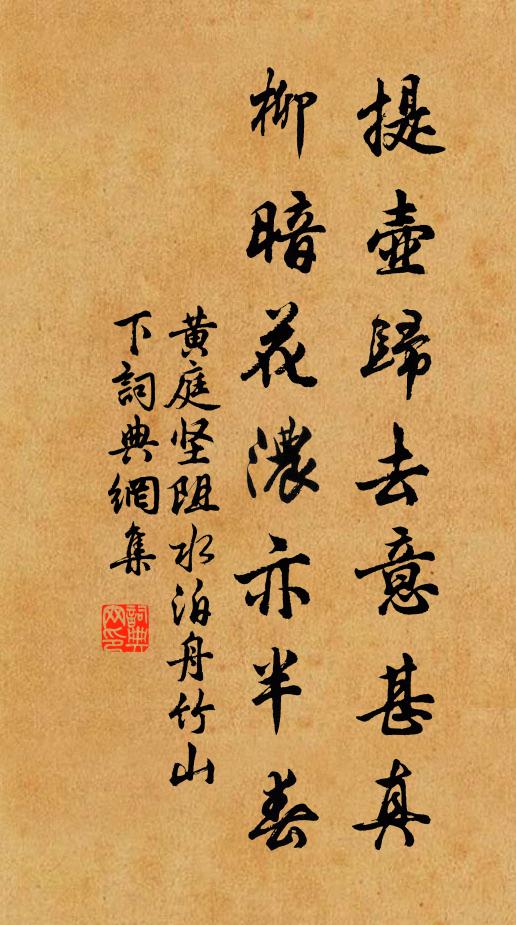 提壺歸去意甚真
柳暗花濃亦半春
黄庭坚阻水泊舟竹山
下詞典網集
詞典
网印